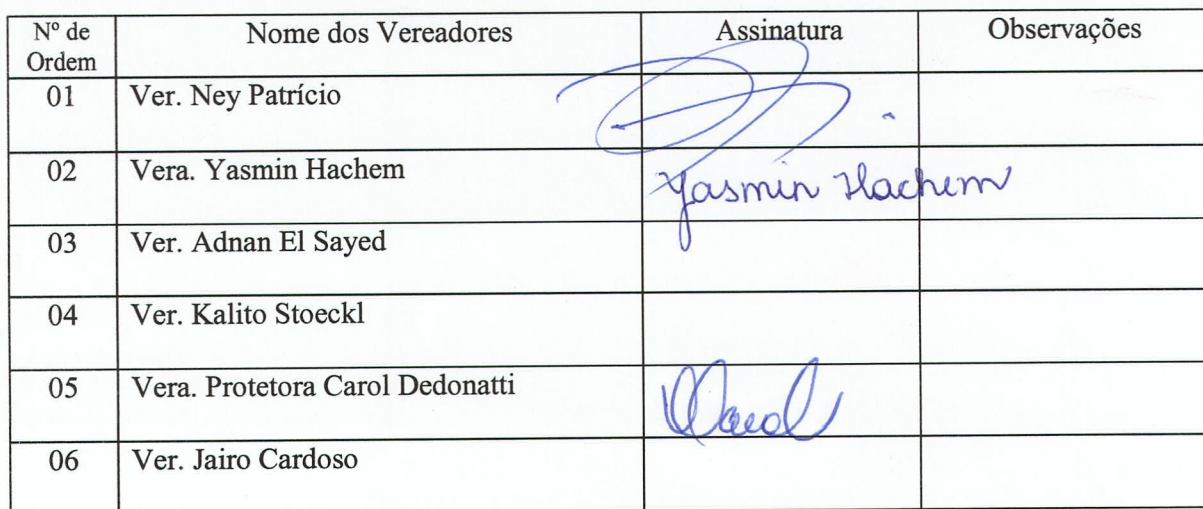 Nº de Ordem Nome dos Vereadores Assinatura Observações
01 Ver. Ney Patrício
02 Vera. Yasmin Hachem Yasmin Hachem
03 Ver. Adnan El Sayed
04 Ver. Kalito Stoeckl
05 Vera. Protetora Carol Dedonatti Carol
06 Ver. Jairo Cardoso